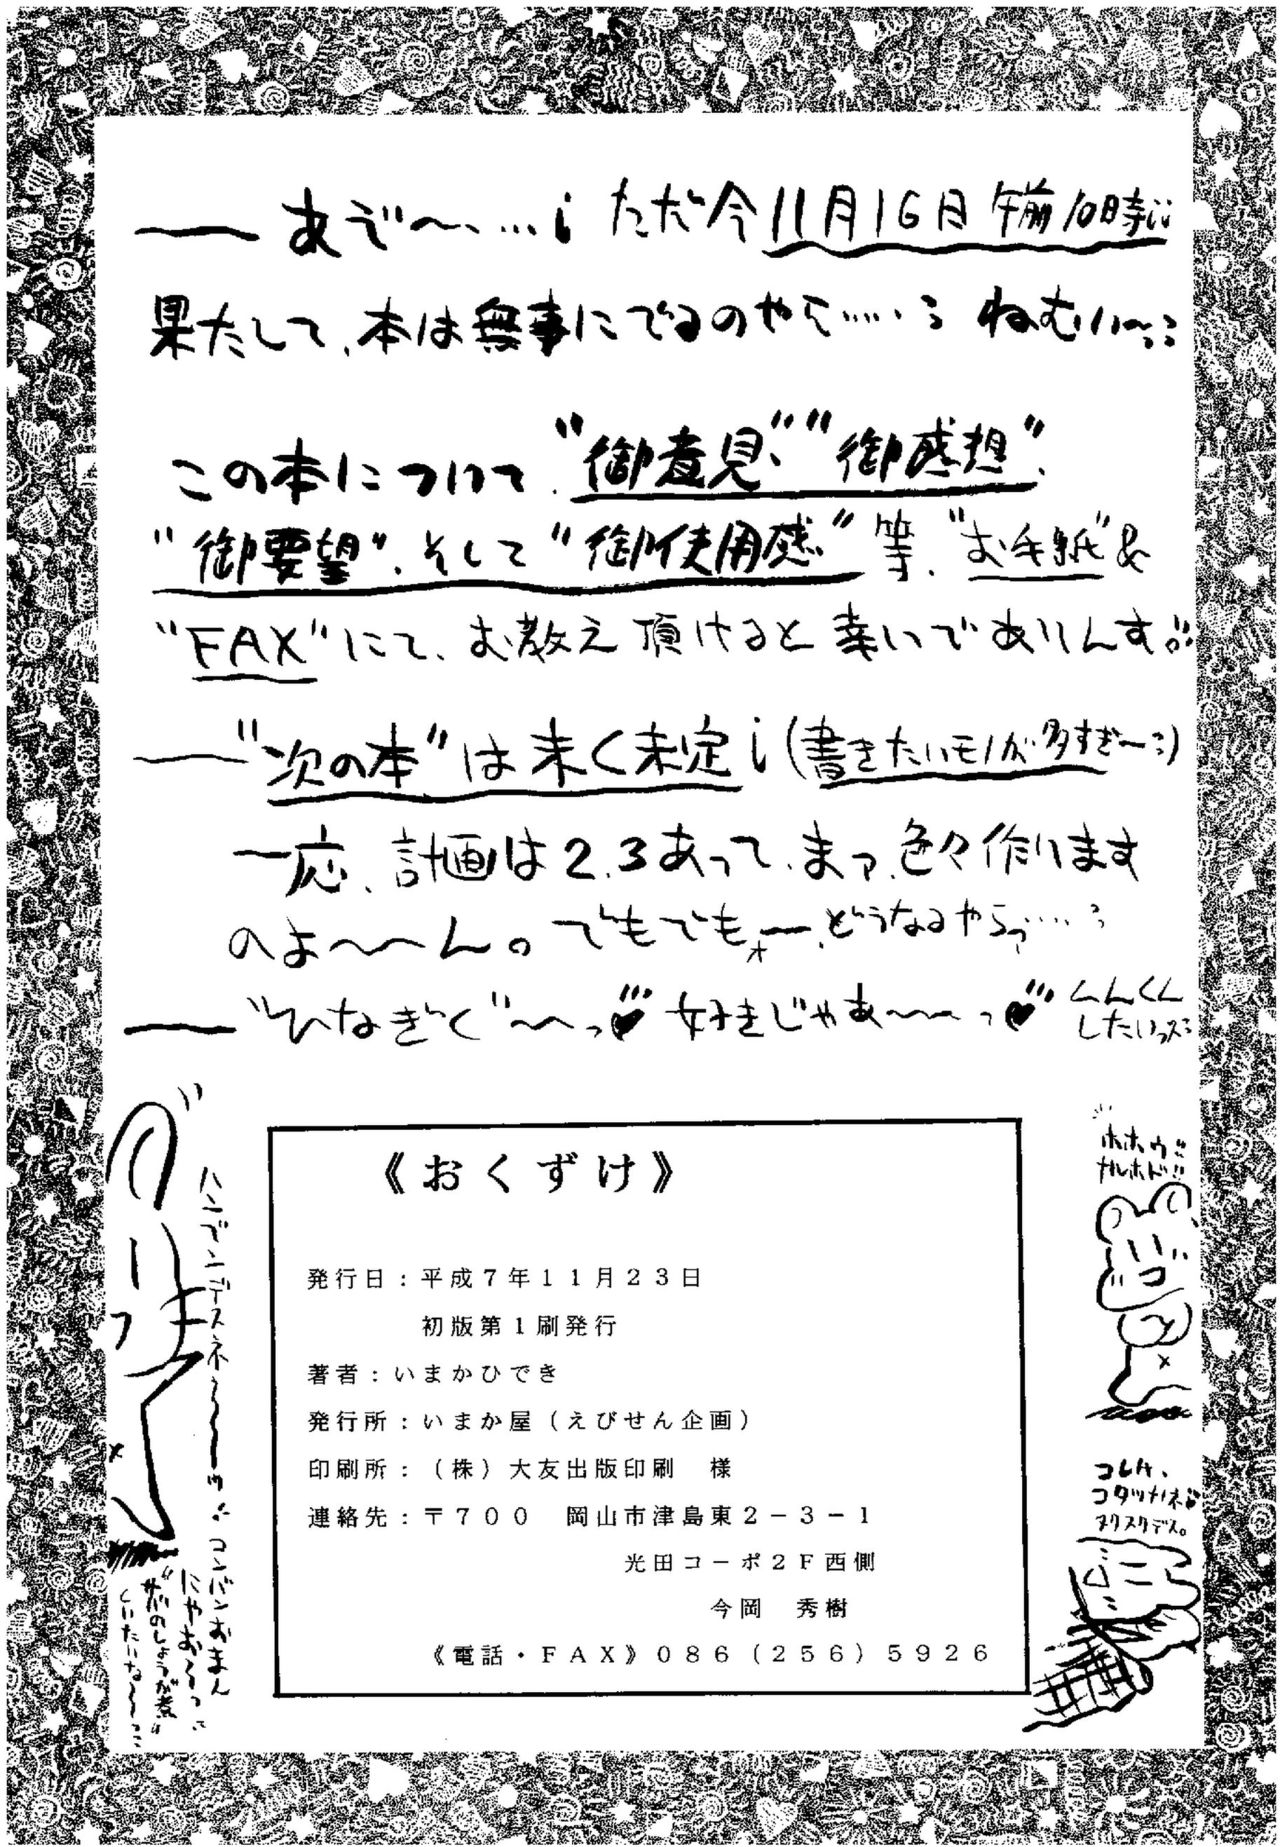 ── あぞ〜…… ただ今11月16日 午前10時
果たして、本は無事にでるのやら…… ねむい〜
この本について、“御意見”“御感想”、
“御要望”、そして“御使用感”等、“お手紙”&
“FAX”にて、お教え頂けると幸いでありんす。
── “次の本”は未く未定！(書きたいモノが多すぎー)
一応、計画は2、3あって、まァ、色々作ります
のよ〜〜ん。でもでもォー、どうなるやらァ……
── “ひなぎく”〜〜っ♥ 好きじゃあ〜〜っ♥ くんくん
したいっス
《おくずけ》
発行日：平成７年１１月２３日
初版第１刷発行
著者：いまかひでき
発行所：いまか屋（えびせん企画）
印刷所：（株）大友出版印刷　様
連絡先：〒７００　岡山市津島東２－３－１
光田コーポ２Ｆ西側
今岡　秀樹
《電話・ＦＡＸ》０８６（２５６）５９２６
ホホウ
ナルホド!!
コレハ、
コタツナノネ
ヌクヌクデス。
コンバンおまん
にゃお〜っ
といたいな〜〜っ